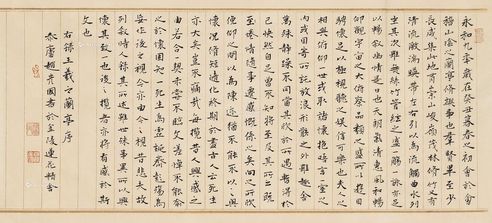 永和九年歲在癸丑暮春之初會於會
稽山陰之蘭亭脩禊事也羣賢畢至少
長咸集此地有崇山峻領茂林脩竹又有
清流激湍映帶左右引以為流觴曲水列
坐其次雖無絲竹管弦之盛一觴一詠亦足
以暢敘幽情是日也天朗氣清惠風和暢
仰觀宇宙之大俯察品類之盛所以遊目
騁懷足以極視聽之娛信可樂也夫人之
相與俯仰一世或取諸懷抱晤言一室之
內或因寄所託放浪形骸之外雖趣舍
萬殊靜躁不同當其欣於所遇暫得於
己快然自足不知老之將至及其所之
既惓情隨事遷感慨係之矣向之所欣
俛仰之間以為陳迹猶不能不以之興
懷況脩短隨化終期於盡古人云死生
亦大矣豈不痛哉每攬昔人興感之
由若合一契未嘗不臨文嗟悼不能喻
之於懷固知一死生為虛誕齊彭殤為
妄作後之視今亦由今之視昔悲夫故
列敘時人錄其所述雖世殊事異所以興
懷其致一也後之攬者亦將有感於斯
文也
右錄王羲之蘭亭序
趙國者於金陵蓮花精舍